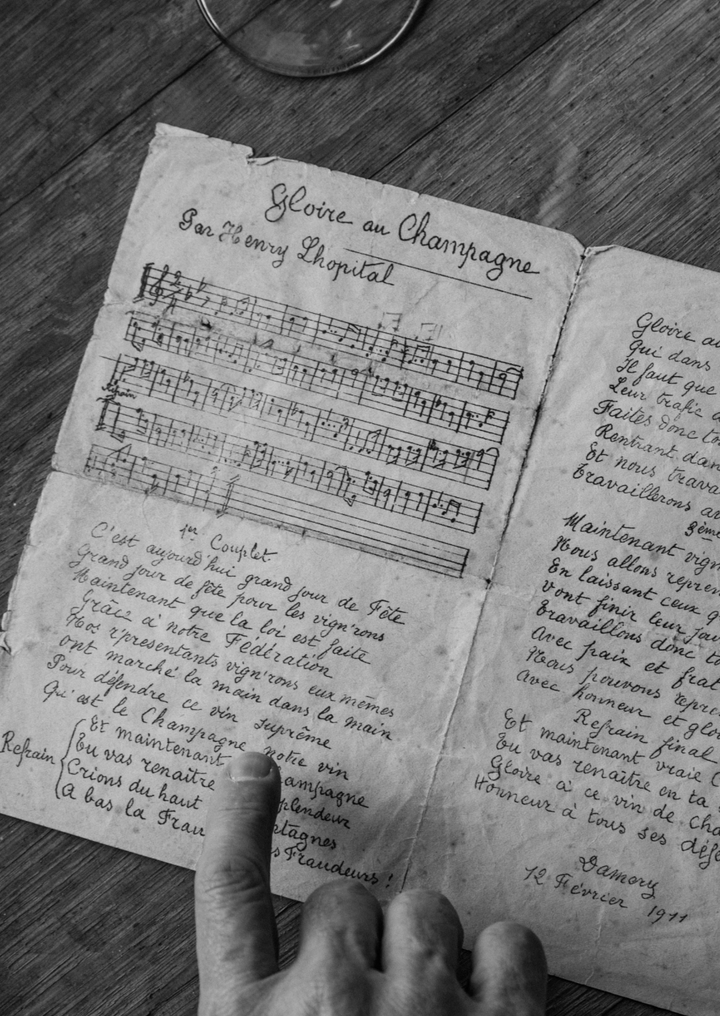 Gloire au Champagne
Par Henry Lhopital
Refrain
1er Couplet
C'est aujourd'hui grand jour de Fête
Grand jour de fête pour les vign'rons
Maintenant que la loi est faite
Grâce à notre Fédération
Nos r'présentants vign'rons eux mêmes
ont marché la main dans la main
Pour défendre ce vin suprême
Qu'est le Champagne notre vin
Refrain
Et maintenant
Tu vas renaître
Crions du haut
A bas la
Fraudeurs !
Gloire
Qui dans
Il faut que
Leur trafic
Faites donc
Rentrant
Et nous
Travaillerons
Maintenant
Nous allons
En laissant ceux
Vont finir leur
Travaillons donc
Avec paix et
Nous pouvons
Avec honneur et
Refrain final
Et maintenant vraie
Tu vas renaître en ta
Gloire à ce vin de
Honneur à tous ses
Damery
12 Février 1911